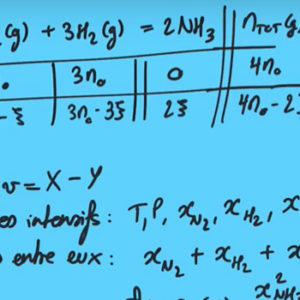 (g) + 3H₂(g) = 2NH₃ n_TOT G
3n₀ 0 4n₀
-ξ 3n₀-3ξ 2ξ 4n₀-2
v = X - Y
intensifs : T, P, x_N₂, x_H₂, x
entre eux : x_N₂ + x_H₂ + x
x²_NH